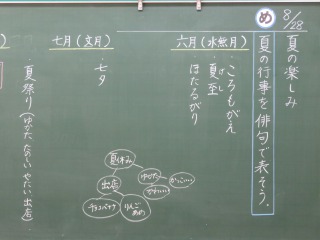 8/28
夏の楽しみ
め
夏の行事を俳句で表そう。
六月(水無月)
・ころもがえ
・夏至
げし
・ほたるがり
七月(文月)
・七夕
・夏祭り(ゆかた たのしい やたい 出店)
夏休み
出店
チョコバナナ
りんごあめ
ゆかた
かわいい
かっこいい